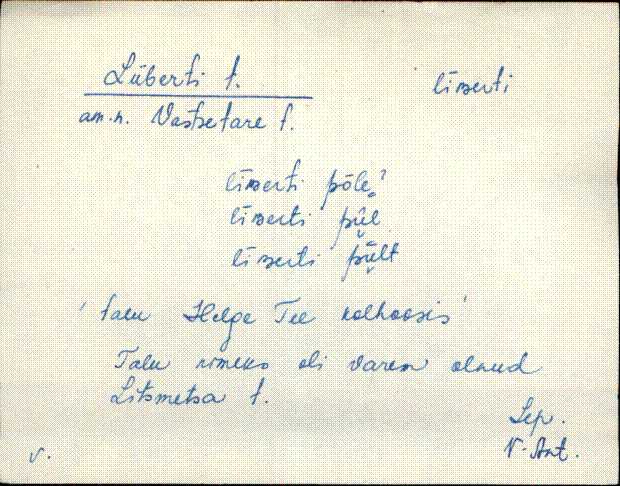 Lüberti t. līʙerti
am.n. Vastsetare t.
līʙerti põle?
līʙerti pǖl
līʙerti pǖlt
'talu Helge Tee kolhoosis'
Talu nimeks oli varem olnud
Litsmetsa t.
Sep.
V-Ant.
v.